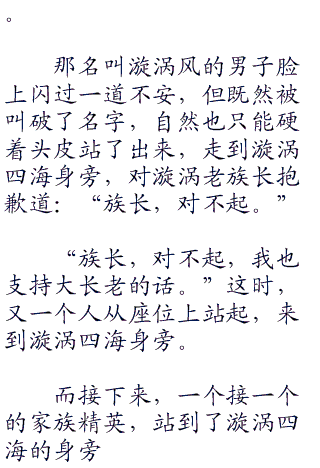 。
那名叫漩涡风的男子脸
上闪过一道不安，但既然被
叫破了名字，自然也只能硬
着头皮站了出来，走到漩涡
四海身旁，对漩涡老族长抱
歉道：“族长，对不起。”
“族长，对不起，我也
支持大长老的话。”这时，
又一个人从座位上站起，来
到漩涡四海身旁。
而接下来，一个接一个
的家族精英，站到了漩涡四
海的身旁